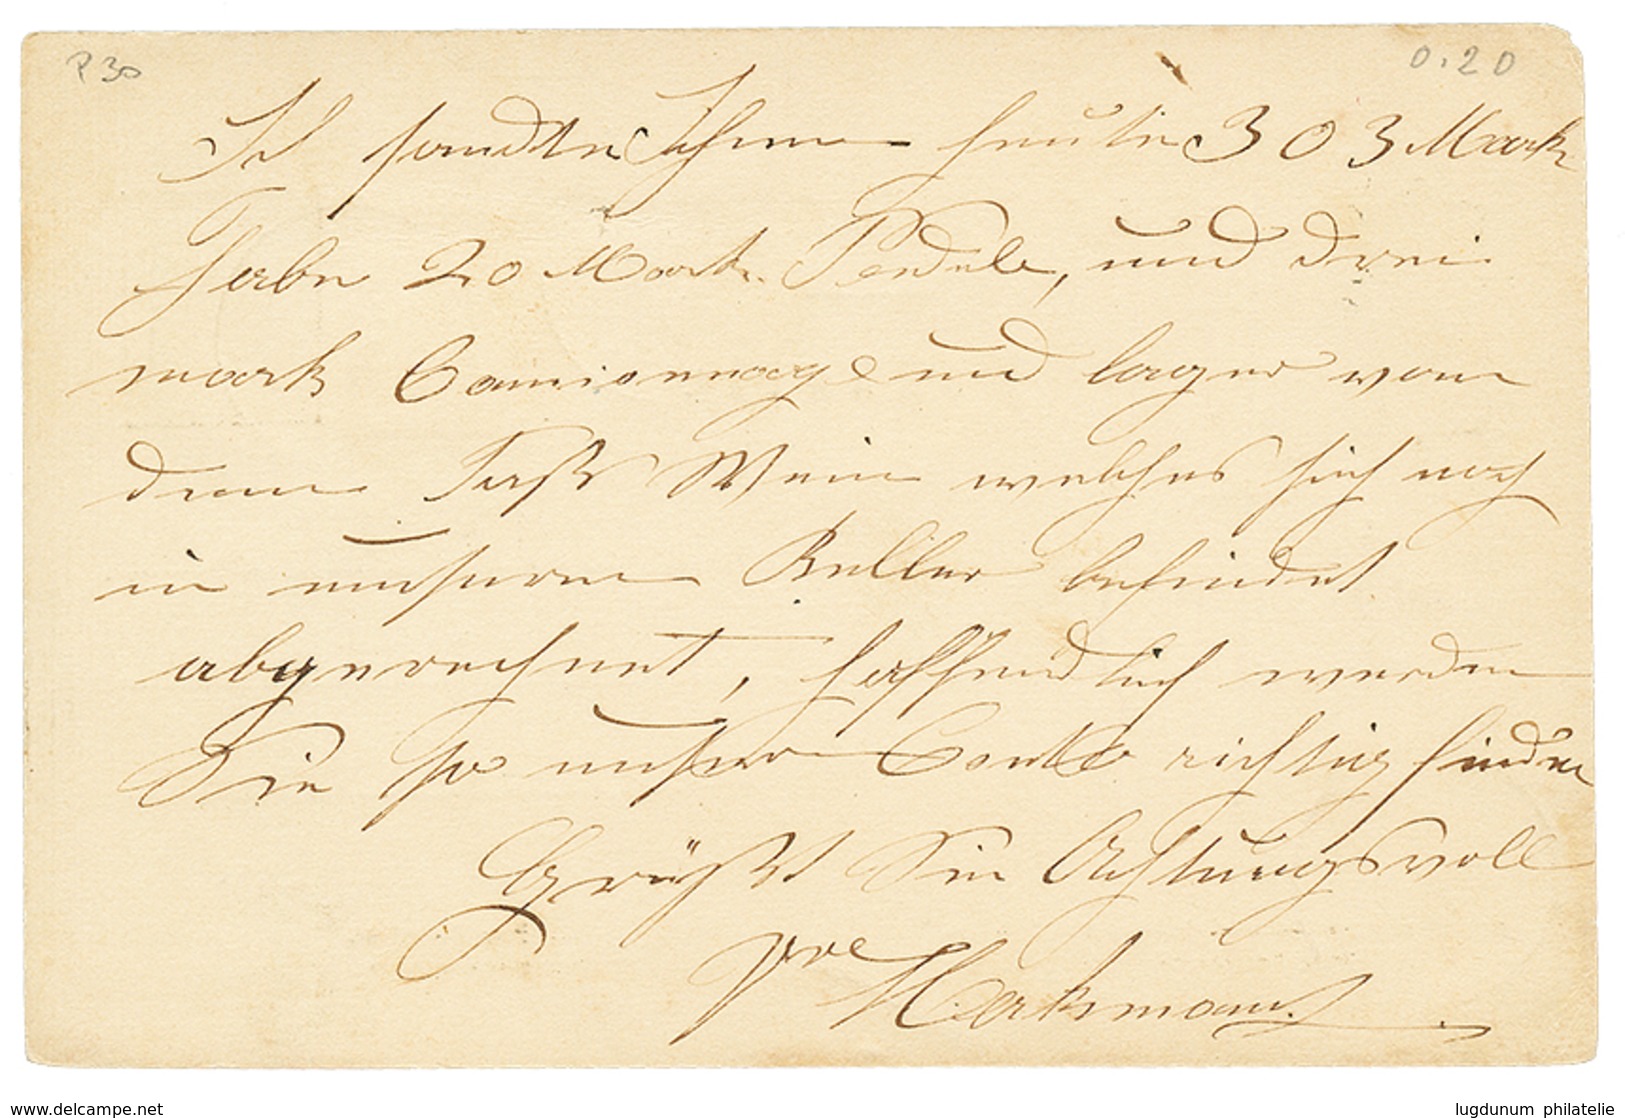 P 30
0.20
Ich sandte Ihnen heute 303 Mark
habe 20 Mark und drei
mark Camionnage und lager von
dem Faß Wein welches sich noch
in unserem Keller befindet
abgerechnet, hoffendlich werden
Sie so unser Conto richtig finden
Grüßt Sie Achtungsvoll
www.delcampe.net
lugdunum philatelie